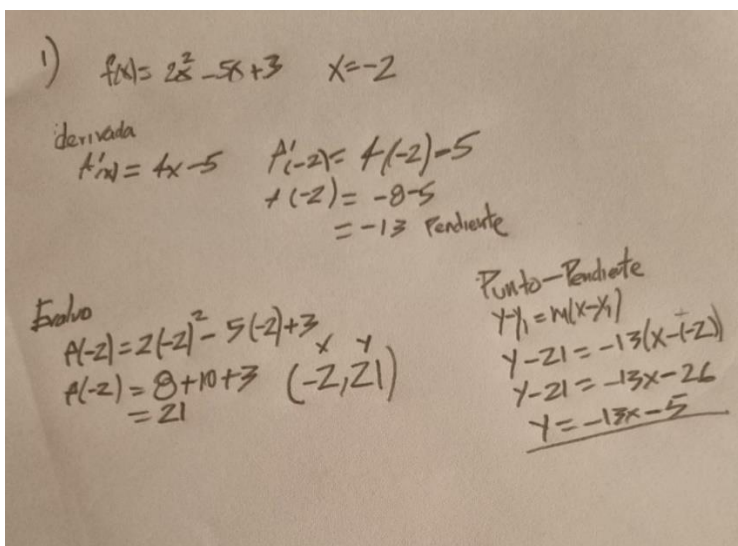 1) f(x)= 2x² -5x+3 x=-2
derivada
f'(x)= 4x-5 f'(-2)= 4(-2)-5
f(-2)= -8-5
=-13 Pendiente
Evaluo
f(-2)=2(-2)²- 5(-2)+3
f(-2)= 8+10+3
=21
x y
(-2,21)
Punto-Pendiente
y-y₁=m(x-x₁)
y-21=-13(x-(-2))
y-21=-13x-26
y=-13x-5